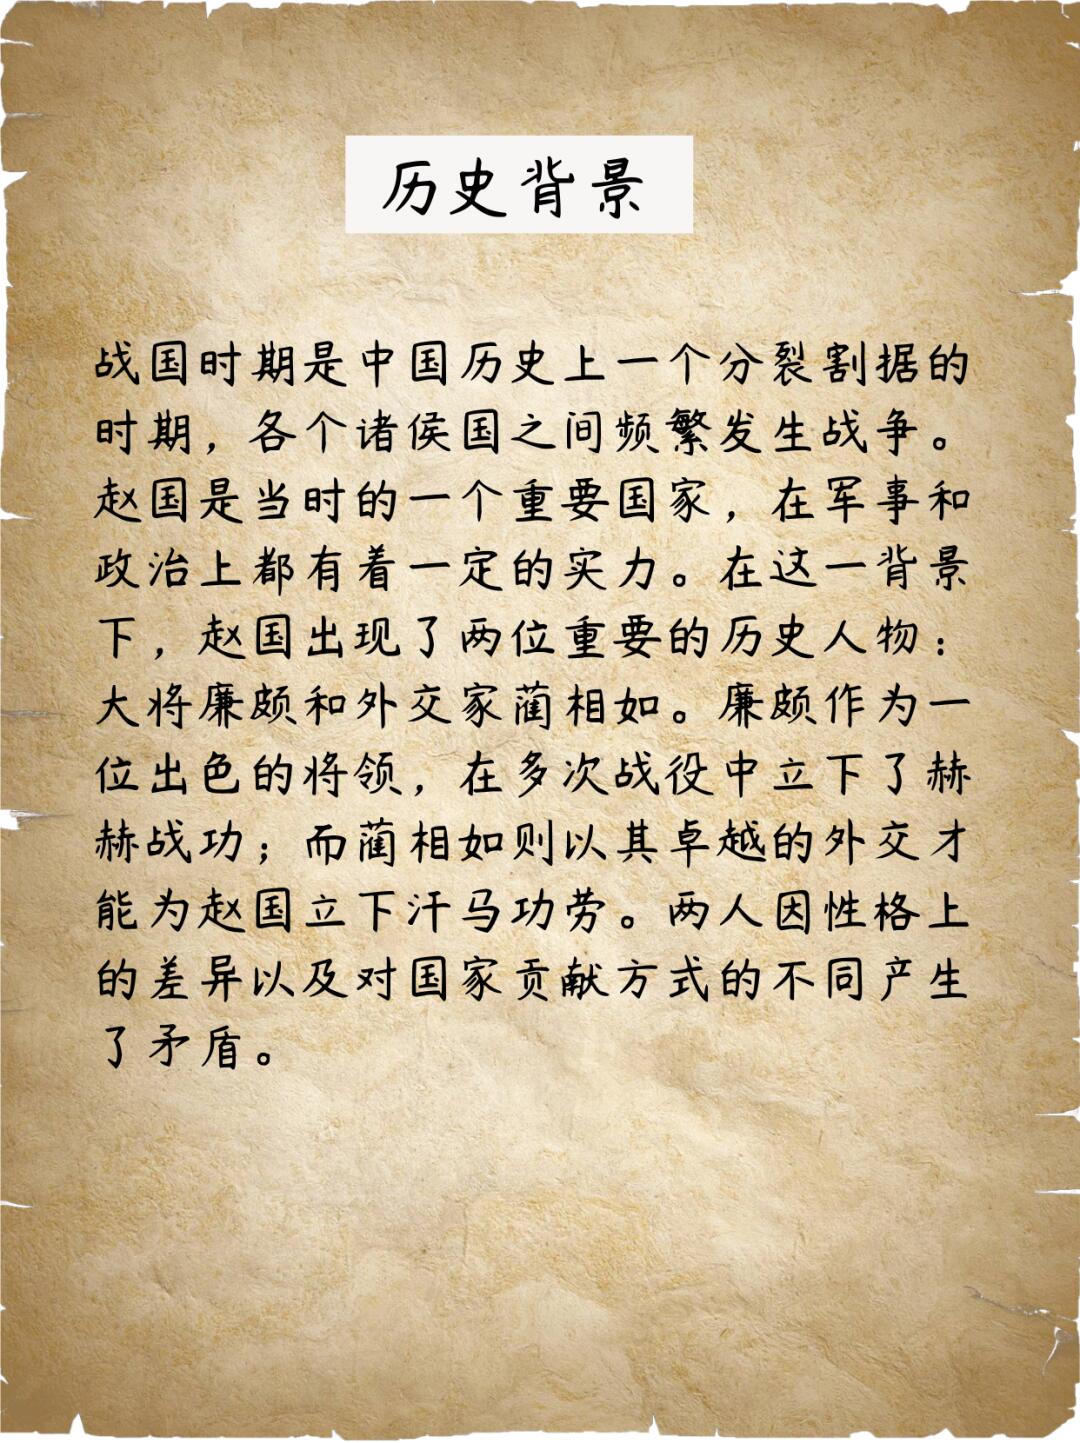 历史背景
战国时期是中国历史上一个分裂割据的
时期，各个诸侯国之间频繁发生战争。
赵国是当时的一个重要国家，在军事和
政治上都有着一定的实力。在这一背景
下，赵国出现了两位重要的历史人物：
大将廉颇和外交家蔺相如。廉颇作为一
位出色的将领，在多次战役中立下了赫
赫战功；而蔺相如则以其卓越的外交才
能为赵国立下汗马功劳。两人因性格上
的差异以及对国家贡献方式的不同产生
了矛盾。